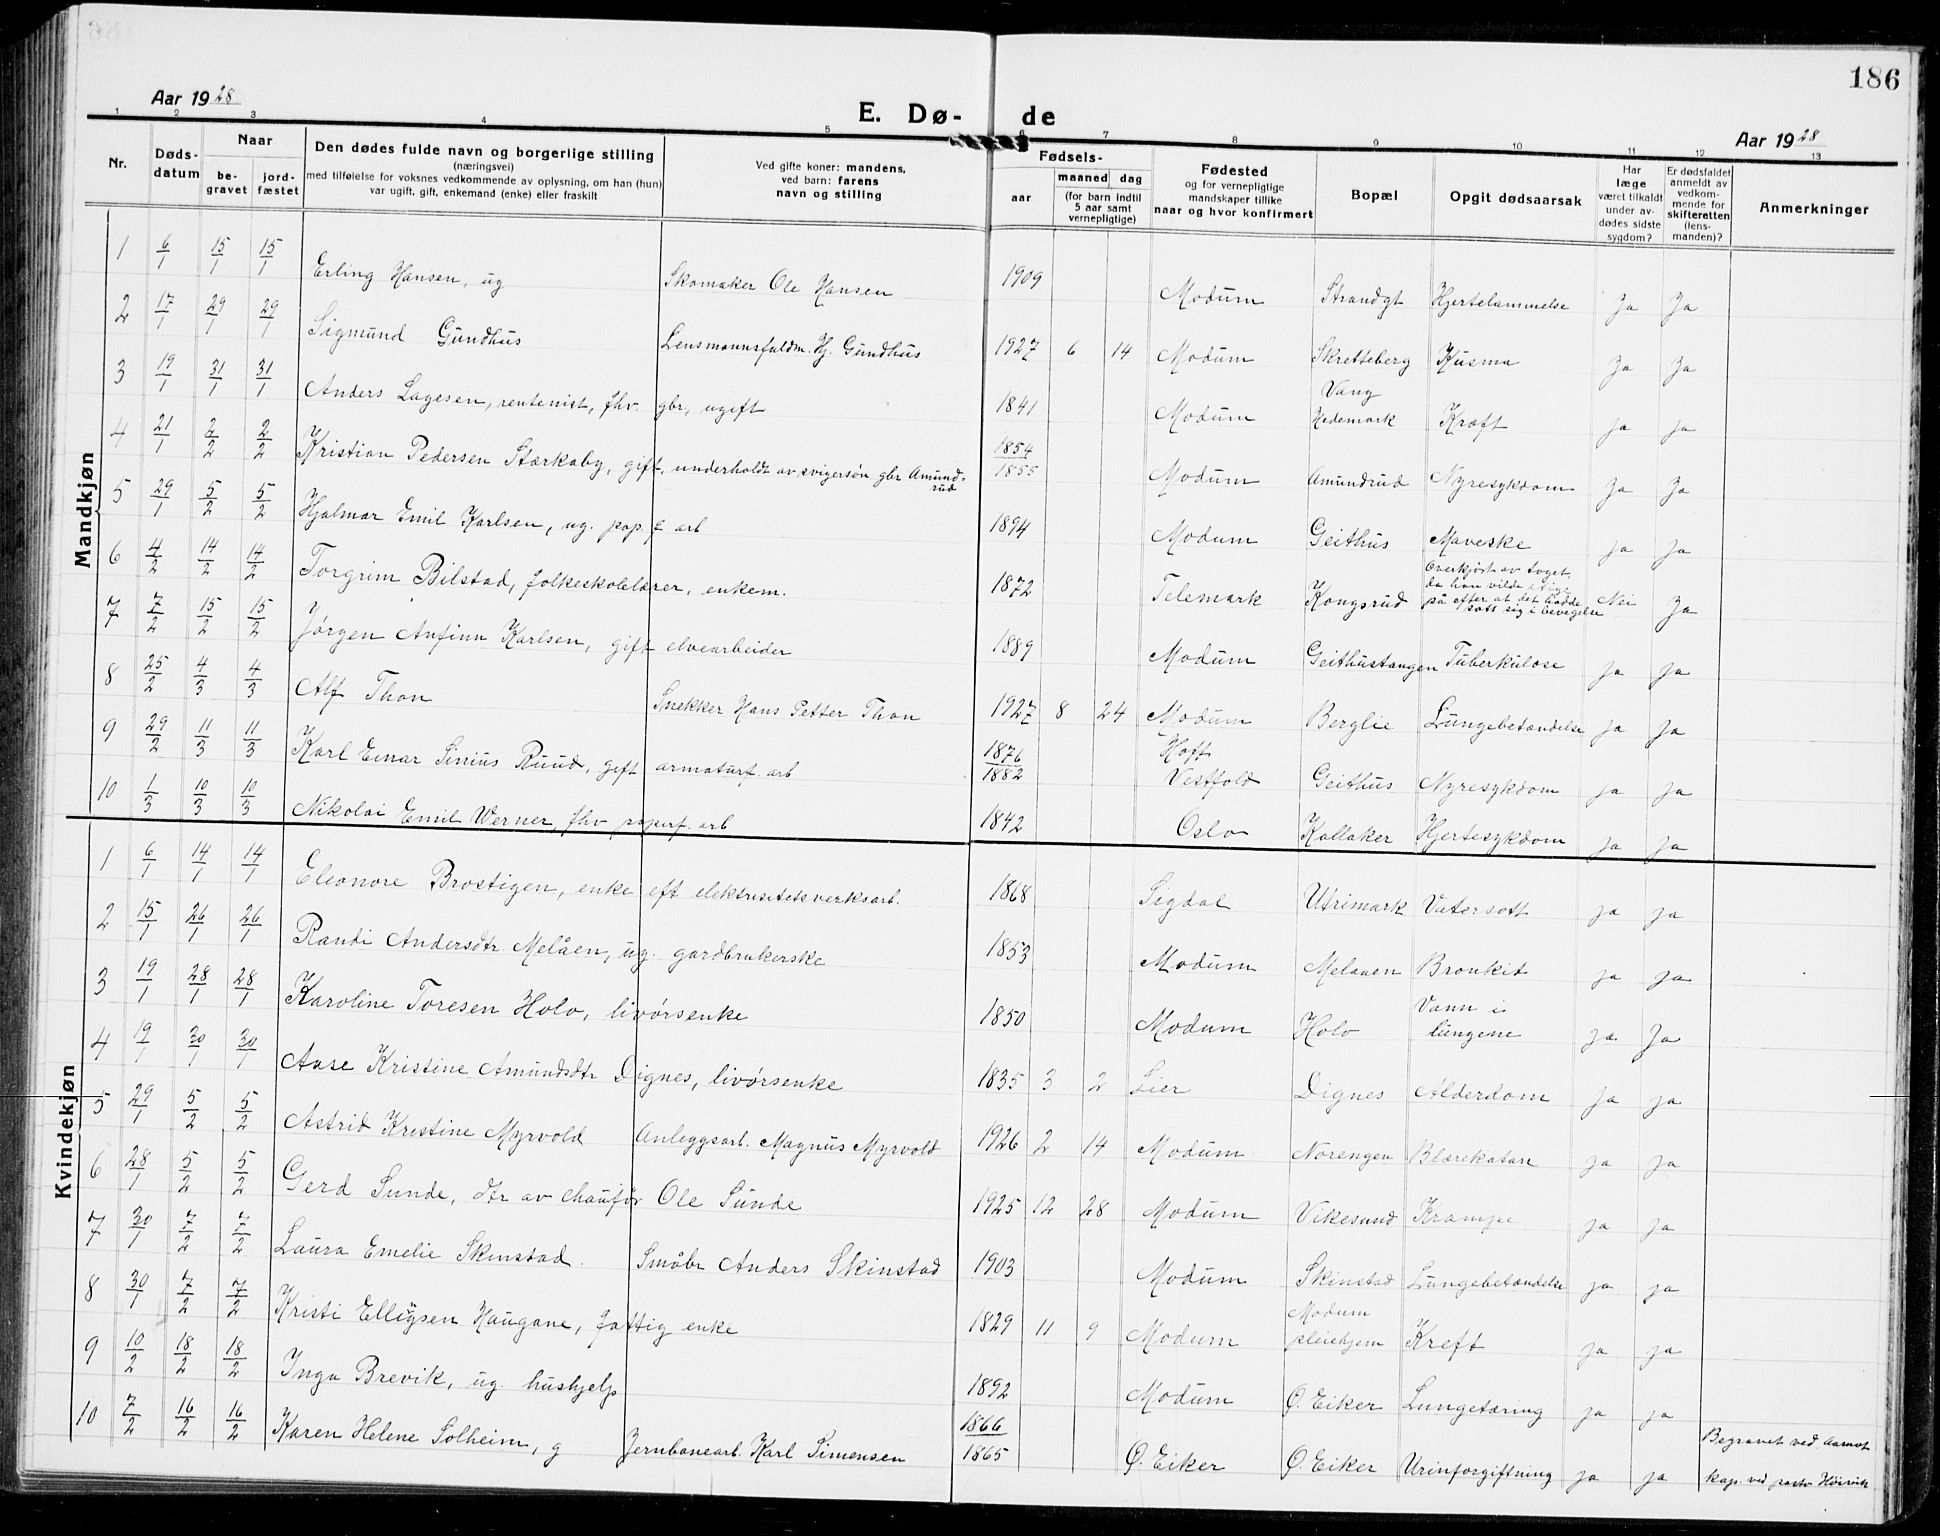 186
Aar 1928
E. Dø- de
Aar 1928
1 2 3 4 5 6 7 8 9 10 11 12 13
Nr.
Døds-datum
Naar
be-gravet
jord-fæstet
Den dødes fulde navn og borgerlige stilling
(næringsvei)
med tilføielse for voksnes vedkommende av oplysning, om han (hun)
var ugift, gift, enkemand (enke) eller fraskilt
Ved gifte koner: mandens,
ved barn: farens
navn og stilling
Fødsels-
aar
maaned dag
(for barn indtil
5 aar samt
vernepligtige)
Fødested
og for vernepligtige
mandskaper tillike
naar og hvor konfirmert
Bopæl
Opgit dødsaarsak
Har
læge
været tilkaldt
under av-
dødes sidste
sygdom?
Er dødsfaldet
anmeldt av
vedkom-
mende for
skifteretten
(lens-
manden)?
Anmerkninger
Mandkjøn
1 6/1 15/1 15/1 Erling Hansen, ug Skomaker Ole Hansen 1909 Modum Strandgt Hjertelammelse Ja Ja
2 17/1 29/1 29/1 Sigmund Gundhus Lensmannsfuldm. Hj. Gundhus 1927 6 14 Modum Skretteberg Kusma Ja Ja
3 19/1 31/1 31/1 Anders Lagesen, rentenist, fhv. gbr, ugift 1841 Modum Vang Hedemark Kræft Ja ja
4 21/1 2/2 2/2 Kristian Pedersen Stærkaby, gift, underholdt av svigersøn gbr Amund-rud 1854 1855 Modum Amundrud Nyresykdom Ja Ja
5 29/1 5/2 5/2 Hjalmar Emil Karlsen, ug. pap. f arb 1894 Modum Geithus Maveske ja Ja
6 4/2 14/2 14/2 Torgrim Bilstad, folkeskolelærer, enkem. 1872 Telemark Kongsrud Overkjørt av toget, da han vilde stige på efter at det hadde satt sig i bevegelse Nei Ja
7 7/2 15/2 15/2 Jørgen Anfinn Karlsen, gift elvearbeider 1889 Modum Geithustangen Tuberkulose ja Ja
8 25/2 4/3 4/3 Alf Thon Snekker Hans Petter Thon 1927 8 24 Modum Berglie Lungebetændelse ja Ja
9 29/2 11/3 11/3 Karl Einar Sinius Ruud, gift armaturf. arb 1876 1882 Hoff Vestfold Geithus Nyresykdom ja Ja
10 1/3 10/3 10/3 Nikolai Emil Werner, fhv paperf. arb 1842 Oslo Kallaker Hjertesykdom ja Ja
Kvindekjøn
1 6/1 14/1 14/1 Eleonore Brostigen, enke eft elektrisitetsverksarb. 1868 Sigdal Utrimark Vatersott ja ja
2 15/1 26/1 26/1 Randi Andersdtr. Melåen, ug. gardbrukerske 1853 Modum Melaaen Bronkit ja ja
3 19/1 28/1 28/1 Karoline Toresen Holo, livørsenke 1850 Modum Holo Vann i lungene ja Ja
4 19/1 30/1 30/1 Aase Kristine Amundsdtr Dignes, livørsenke 1835 3 2 Lier Dignes Alderdom Ja ja
5 29/1 5/2 5/2 Astrid Kristine Myrvold Anleggsarb. Magnus Myrvold 1926 2 14 Modum Norengen Blærekatarr ja ja
6 28/1 5/2 5/2 Gerd Sunde, dtr av chauffør Ole Sunde 1925 12 28 Modum Vikesund Krampe ja ja
7 30/1 7/2 7/2 Laura Emelie Skinstad. Småbr Anders Skinstad 1903 Modum Skinstad Lungebetændelse ja ja
8 30/1 7/2 7/2 Kristi Ellingsen Haugane, fattig enke 1829 11 9 Modum Modum pleiehjem Kreft ja ja
9 10/2 18/2 18/2 Inga Brevik, ug hushjelp 1892 Modum Ø. Eiker Lungetæring ja ja
10 7/2 16/2 16/2 Karen Helene Solheim, g Jernbanearb. Karl Simensen 1866 1865 Ø. Eiker Ø. Eiker Urinforgiftning ja ja Begravet ved Aamot kap. ved pastor Høivik